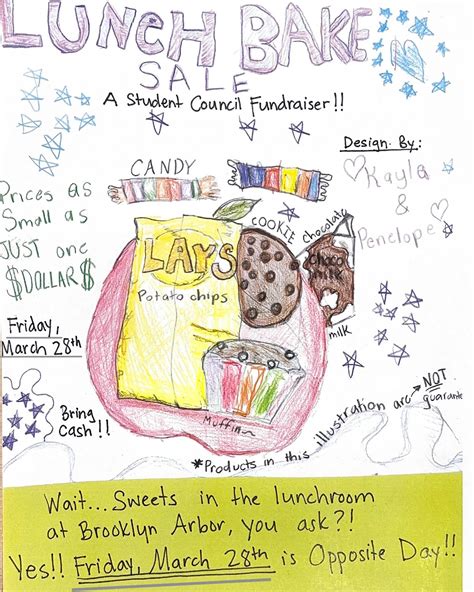 LUNCH BAKE
SALE
A Student Council Fundraiser!!
Design By:
Kayla
&
Penelope
CANDY
Prices as
Small as
JUST one
$DOLLAR$
COOKIE
chocolate
choco
milk
milk
LAYS
Potato chips
Friday,
March 28th
Bring
Cash!!
Muffin
*Products in this illustration are NOT guarante
Wait... Sweets in the lunchroom
at Brooklyn Arbor, you ask?!
Yes!! Friday, March 28th is Opposite Day!!